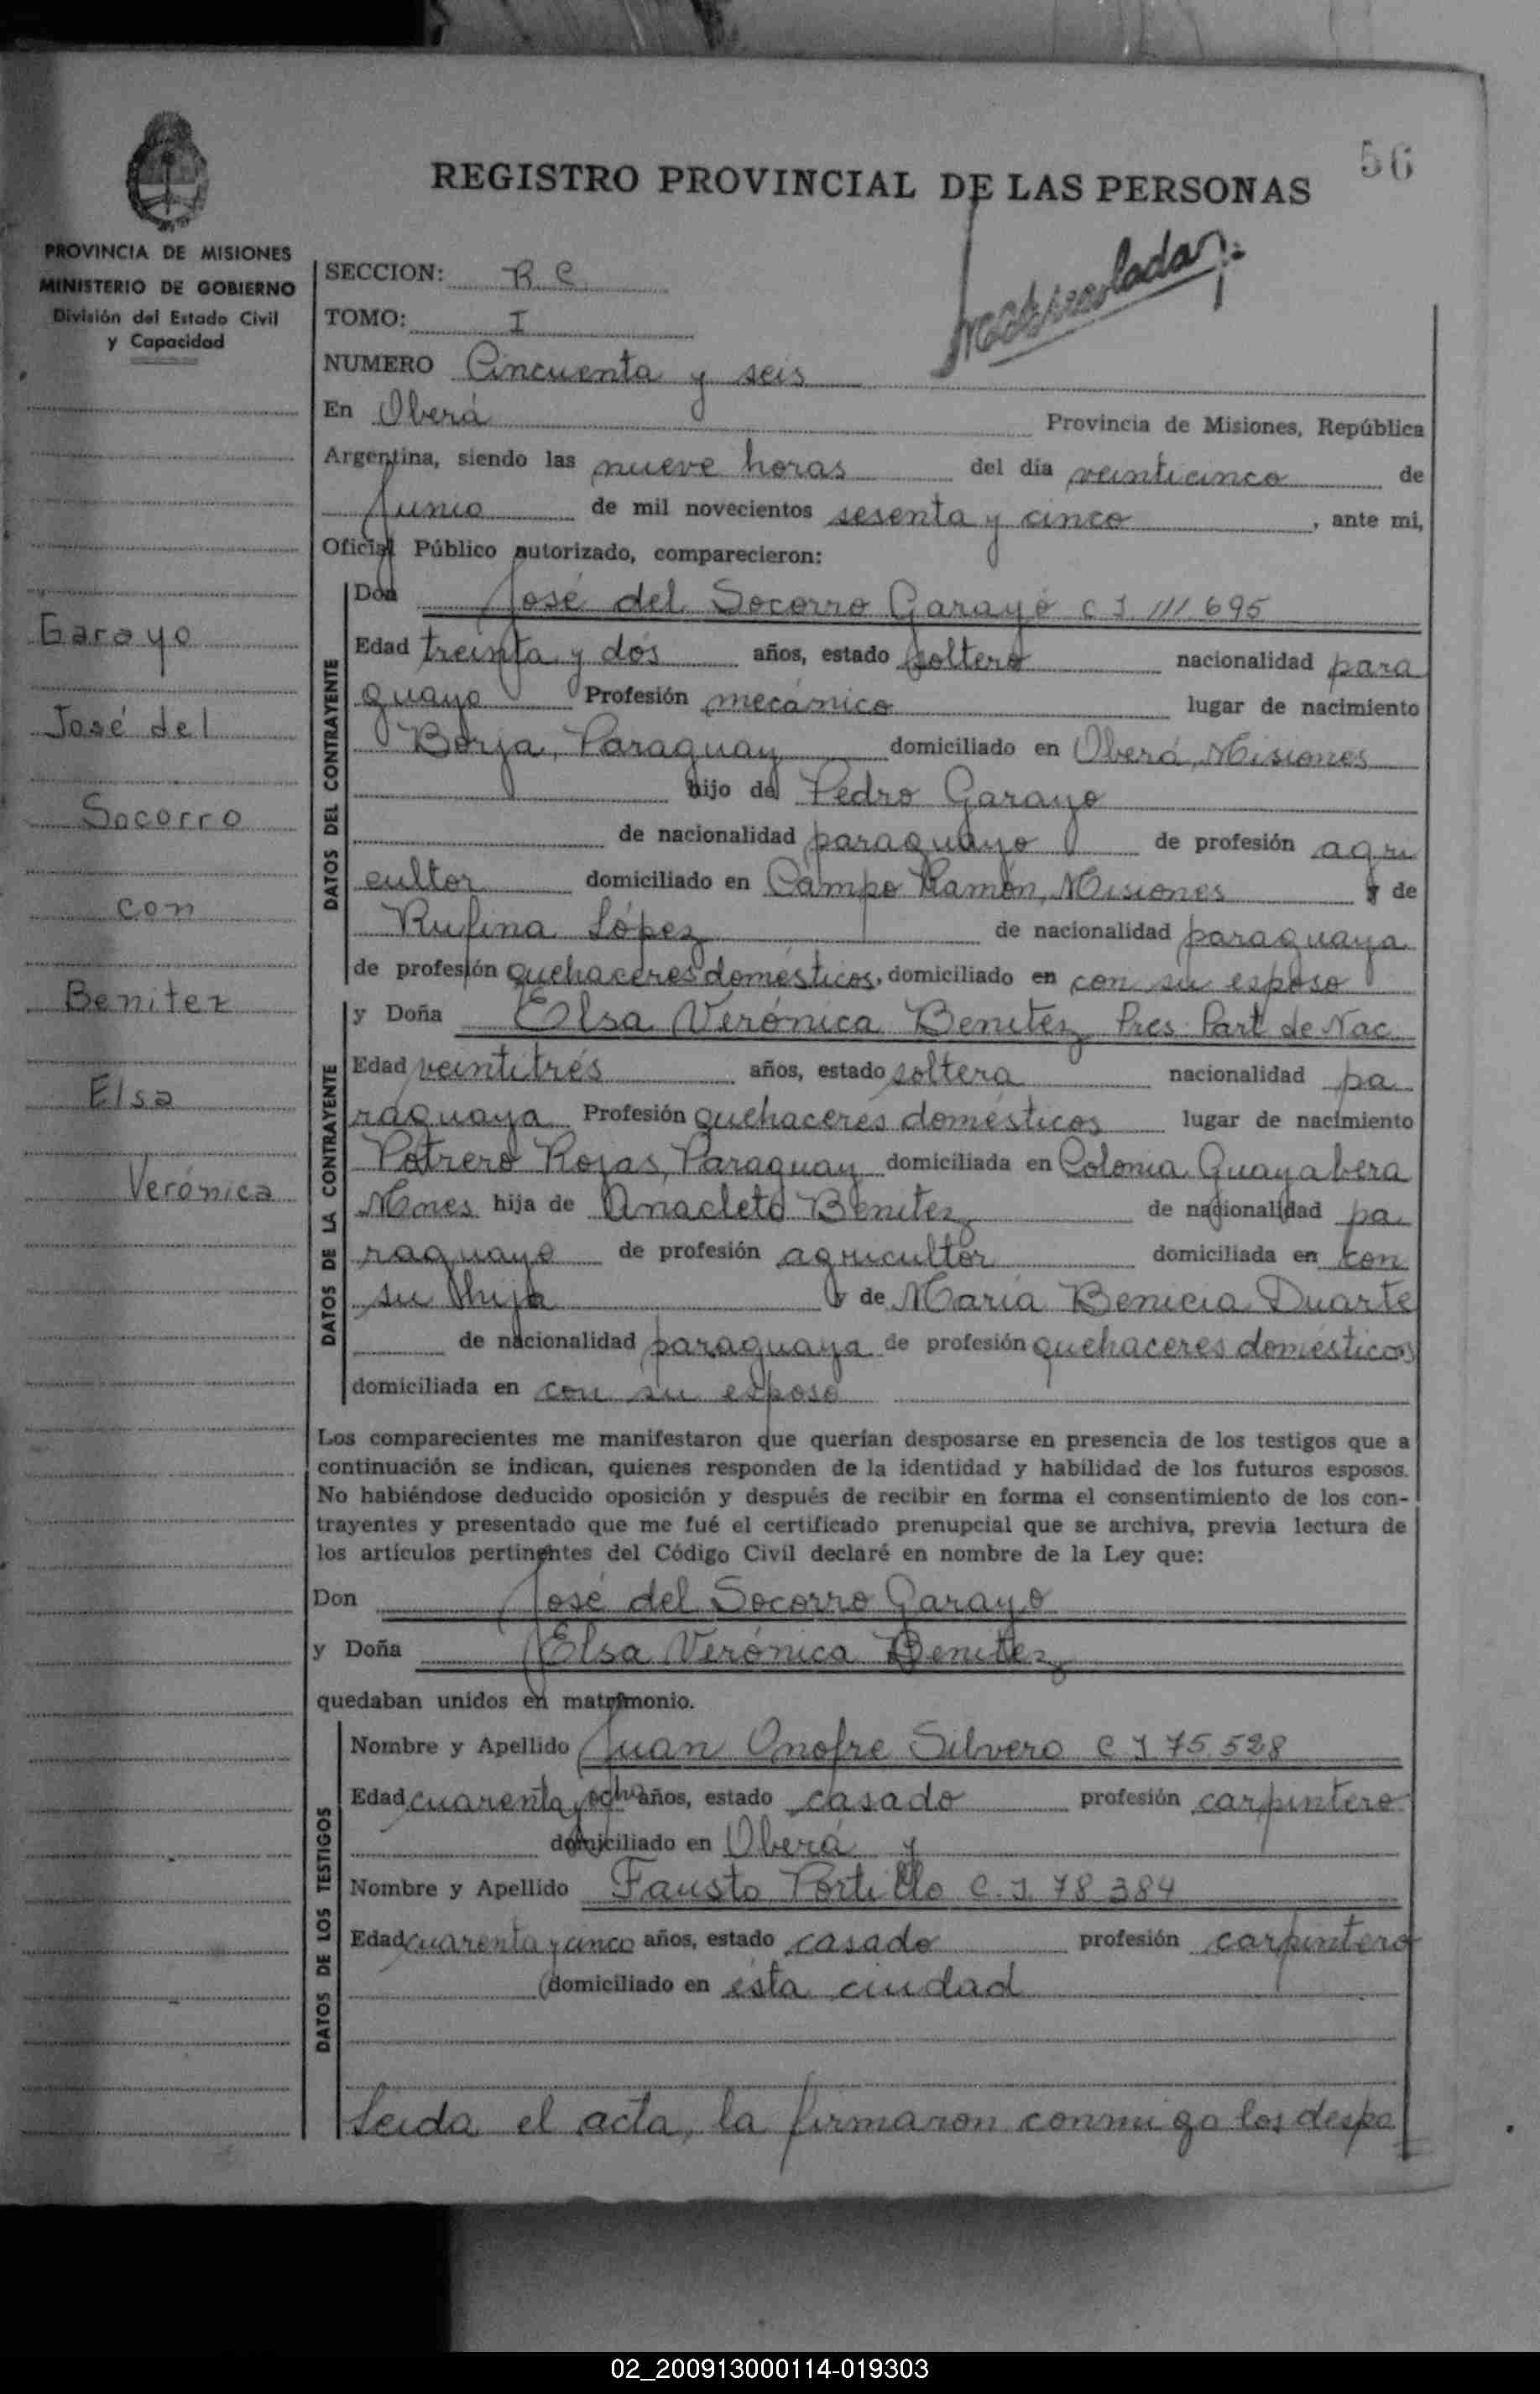 56
REGISTRO PROVINCIAL DE LAS PERSONAS
PROVINCIA DE MISIONES
MINISTERIO DE GOBIERNO
División del Estado Civil
y Capacidad
Garayo
José del
Socorro
con
Benitez
Elsa
Verónica
SECCION: R C
TOMO: I
NUMERO Cincuenta y seis
En Oberá Provincia de Misiones, República
Argentina, siendo las nueve horas del día veinticinco de
Junio de mil novecientos sesenta y cinco, ante mi,
Oficial Público autorizado, comparecieron:
DATOS DEL CONTRAYENTE
Don José del Socorro Garayo C I 111 695
Edad treinta y dos años, estado soltero nacionalidad para
guayo Profesión mecánico lugar de nacimiento
Borja, Paraguay domiciliado en Oberá, Misiones
hijo de Pedro Garayo
de nacionalidad paraguayo de profesión agri
cultor domiciliado en Campo Ramón, Misiones y de
Rufina López de nacionalidad paraguaya
de profesión quehaceres domésticos, domiciliado en con su esposo
DATOS DE LA CONTRAYENTE
y Doña Elsa Verónica Benitez Pres. Part de Nac
Edad veintitrés años, estado soltera nacionalidad pa
raguaya Profesión quehaceres domésticos lugar de nacimiento
Potrero Rojas, Paraguay domiciliada en Colonia Guayabera
Mnes hija de Anacleto Benitez de nacionalidad pa
raguayo de profesión agricultor domiciliada en con
su hija y de María Benicia Duarte
de nacionalidad paraguaya de profesión quehaceres domésticos
domiciliada en con su esposo
Los comparecientes me manifestaron que querían desposarse en presencia de los testigos que a
continuación se indican, quienes responden de la identidad y habilidad de los futuros esposos.
No habiéndose deducido oposición y después de recibir en forma el consentimiento de los con-
trayentes y presentado que me fué el certificado prenupcial que se archiva, previa lectura de
los artículos pertinentes del Código Civil declaré en nombre de la Ley que:
Don José del Socorro Garayo
y Doña Elsa Verónica Benitez
quedaban unidos en matrimonio.
DATOS DE LOS TESTIGOS
Nombre y Apellido Juan Onofre Silvero C I 75.528
Edad cuarenta y ocho años, estado casado profesión carpintero
domiciliado en Oberá y
Nombre y Apellido Fausto Portillo C. I. 78 384
Edad cuarenta y cinco años, estado casado profesión carpintero
domiciliado en ésta ciudad
Leida el acta, la firmaron conmigo los despo
02_200913000114-019303